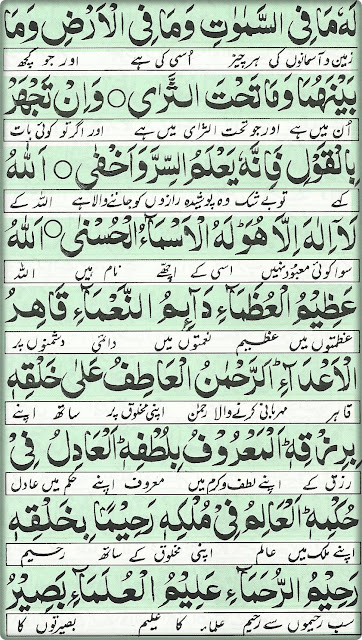 لَهٗ مَا فِی السَّمٰوٰتِ وَمَا فِی الْاَرْضِ وَمَا
زمین و آسمانوں کی ہر چیز اُسی کی ہے اور جو کچھ
بَیْنَهُمَا وَمَا تَحْتَ الثَّرٰی ○ وَاِنْ تَجْهَرْ
اُن میں ہے اور جو تحت الثرٰی میں ہے اور اگر تو کوئی بات
بِالْقَوْلِ فَاِنَّهٗ یَعْلَمُ السِّرَّ وَاَخْفٰی ○ اَللهُ
کہے تو بے شک وہ پوشیدہ رازوں کو جاننے والا ہے اللہ کے
لَاۤ اِلٰهَ اِلَّا هُوَ لَهُ الْاَسْمَآءُ الْحُسْنٰی ○ اَللهُ
سوا کوئی معبود نہیں اسی کے اچھے نام ہیں اللہ
عَظِیْمُ الْعُظَمَآءِ دَآئِمُ النَّعْمَآءِ قَاهِرُ
عظمتوں میں عظیم نعمتوں میں دائمی دشمنوں پر
الْاَعْدَآءِ الرَّحْمٰنُ الْعَاطِفُ عَلٰی خَلْقِهٖ
قاہر مہربانی کرنے والا رحمٰن اپنی مخلوق پر ساتھ اپنے
بِرِزْقِهِ الْمَعْرُوْفُ بِلُطْفِهِ الْعَادِلُ فِیْ
رزق کے اپنے لطف و کرم میں معروف اپنے حکم میں عادل
حُكْمِهِ الْعَالِمُ فِیْ مُلْكِهٖ رَحِیْمًا بِخَلْقِهٖ
اپنے ملک میں عالم اپنی مخلوق کے ساتھ رحیم
رَحِیْمُ الرُّحَمَآءِ عَلِیْمُ الْعُلَمَآءِ بَصِیْرُ
سب رحیموں سے رحیم علماء کا علیم بصیرتوں کا